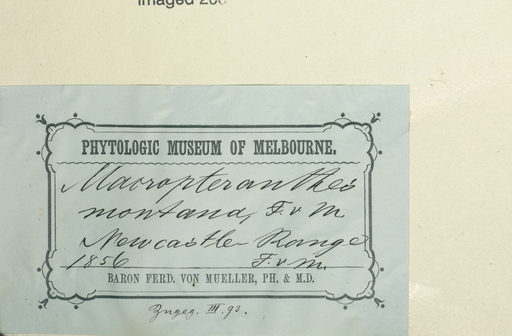 Imaged
PHYTOLOGIC MUSEUM OF MELBOURNE.
Macropteranthes
montana, F. v M.
Newcastle Range
1856 F. v M.
BARON FERD. VON MUELLER, PH. & M.D.
III. 93.